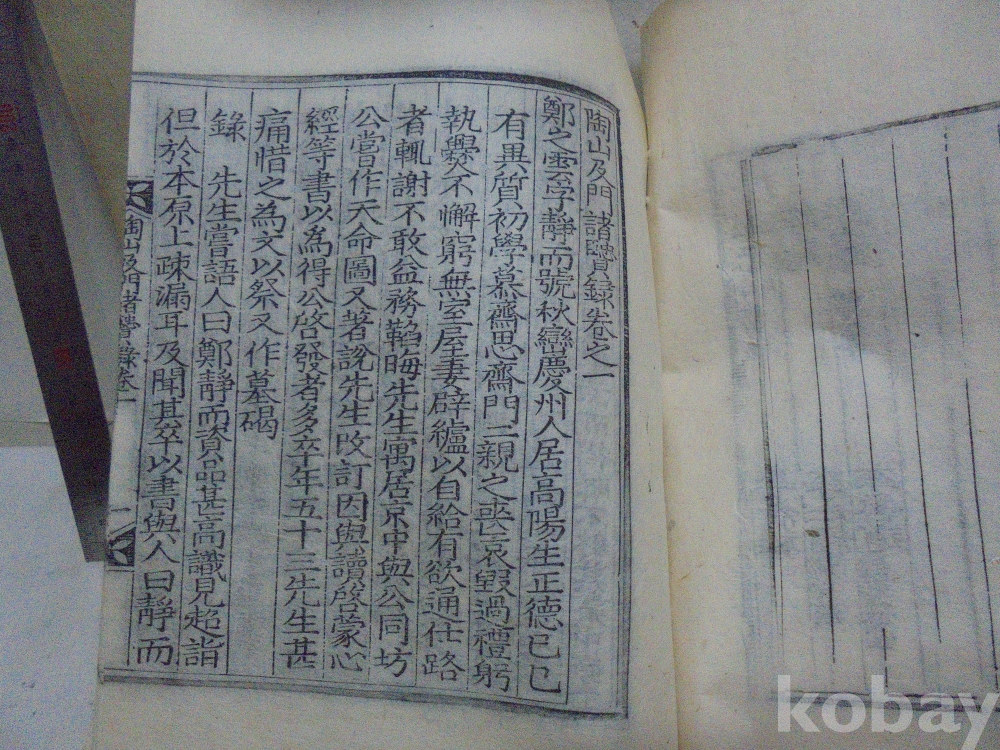 陶山及門諸賢錄卷之一
鄭之雲字靜而號秋巒慶州人居高陽生正德己巳
有異質初學慕齋思齋門二親之喪哀毀過禮躬
執爨不懈窮無室屋妻辟纑以自給有欲通仕路
者輒謝不敢益務韜晦先生寓居京中與公同坊
公嘗作天命圖又著說先生改訂因與讀啓蒙心
經等書以爲得公啓發者多卒年五十三先生甚
痛惜之為文以祭又作墓碣
錄 先生嘗語人曰鄭靜而資品甚高識見超詣
但於本原上疎漏耳及聞其卒以書與人曰靜而
陶山及門諸賢錄卷一
kobay